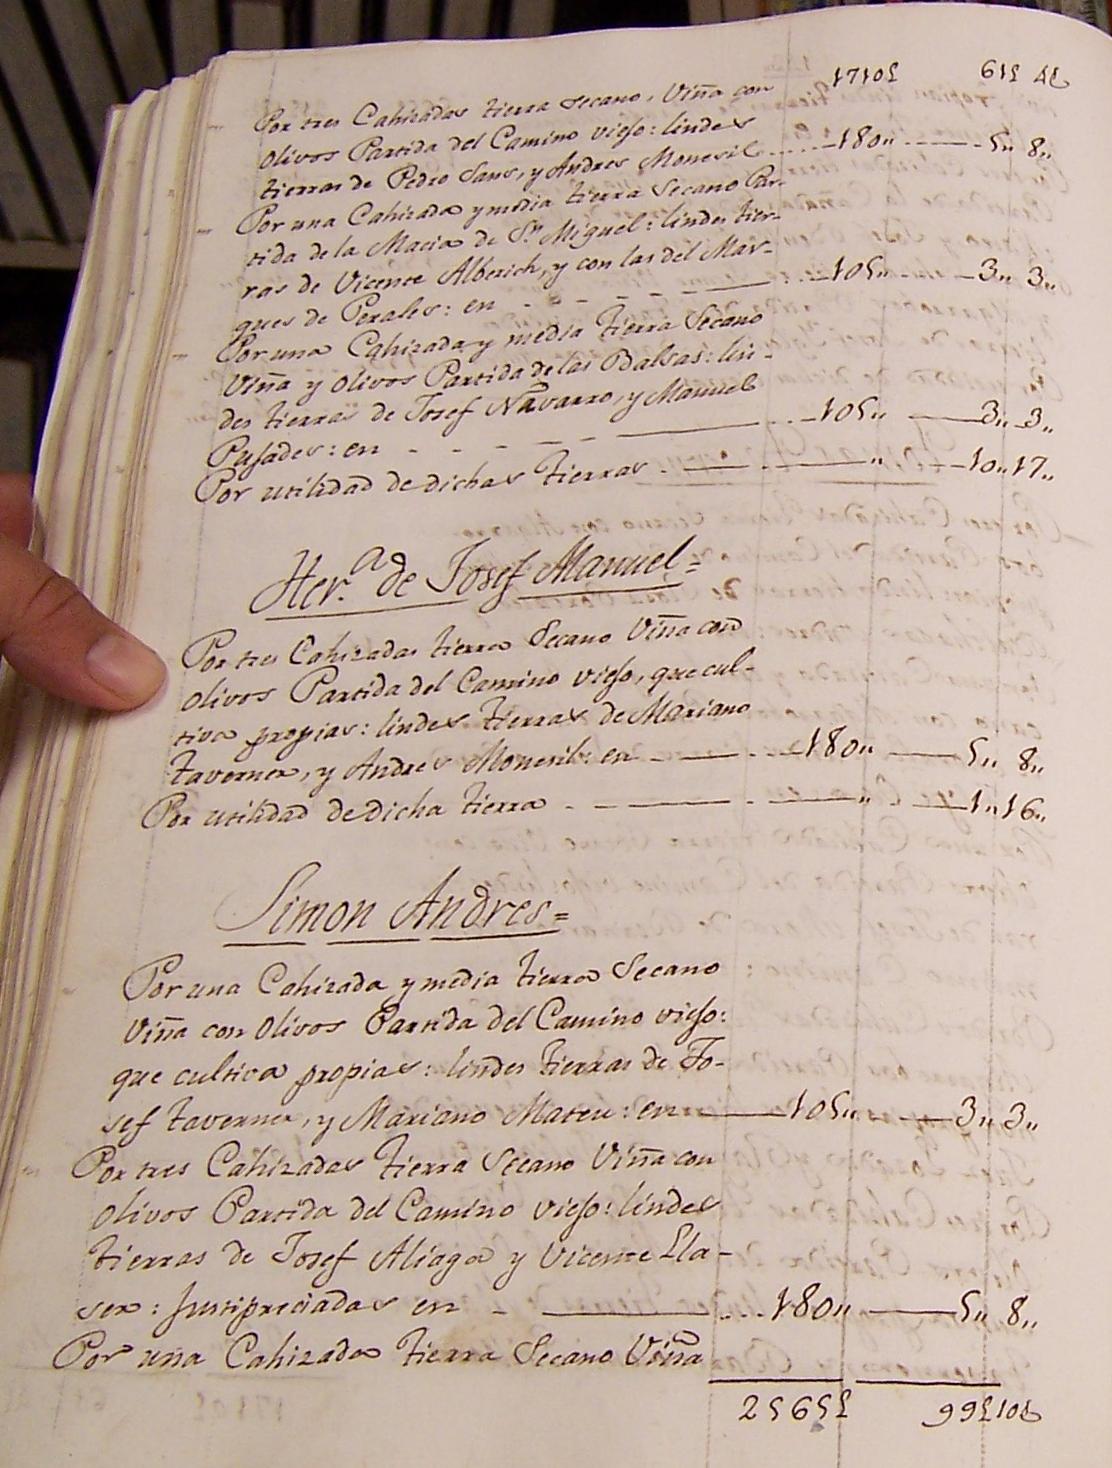 1710£ 61£ 4s
Por tres Cahizadas tierra Secano, Viña con
Olivos Partida del Camino viejo: lindes
tierras de Pedro Sans, y Andres Moneril ..... 180,, — 5,, 8,,
Por una Cahizada y media tierra Secano Par-
tida de la Macia de Sn. Miguel: lindes tier-
ras de Vicente Alberich, y con las del Mar-
ques de Perales: en - - - - — ... 105,, — 3,, 3,,
Por una Cahizada y media tierra Secano
Viña y Olivos Partida de las Balsas: lin-
des tierras de Josef Navarro, y Manuel
Pusades: en - - - — ... 105,, — 3,, 3,,
Por utilidad de dichas tierras - — ,, — 10,, 17,,
Her.a de Josef Manuel=
Por tres Cahizadas tierra Secano Viña con
Olivos Partida del Camino viejo, que cul-
tiva propias: lindes tierras de Mariano
Taverner, y Andres Moneril: en - — ... 180,, — 5,, 8,,
Por utilidad de dicha tierra - — ,, — 1,, 16,,
Simon Andres=
Por una Cahizada y media tierra Secano
Viña con Olivos Partida del Camino viejo:
que cultiva propias: lindes tierras de Jo-
sef Taverner, y Mariano Mateu: en — 105,, — 3,, 3,,
Por tres Cahizadas tierra Secano Viña con
Olivos Partida del Camino viejo: lindes
tierras de Josef Aliaga y Vicente Lla-
ser: Justipreciadas en - — ... 180,, — 5,, 8,,
Por una Cahizada tierra Secano Viña
2565£ 99£ 10s